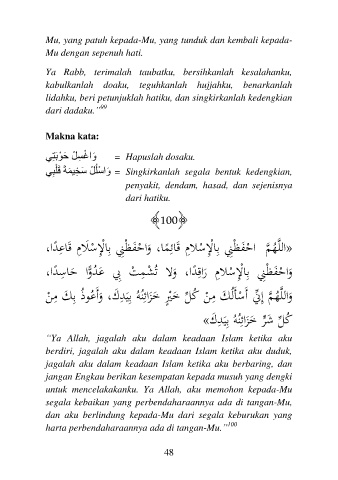 Mu, yang patuh kepada-Mu, yang tunduk dan kembali kepada-
Mu dengan sepenuh hati.
Ya Rabb, terimalah taubatku, bersihkanlah kesalahanku,
kabulkanlah doaku, teguhkanlah hujjahku, benarkanlah
lidahku, beri petunjuklah hatiku, dan singkirkanlah kedengkian
dari dadaku.”99
Makna kata:
وَاغْسِلْ حَوْبَتِي = Hapuslah dosaku.
وَاسْلُلْ سَخِيمَةَ قَلْبِي = Singkirkanlah segala bentuk kedengkian,
penyakit, dendam, hasad, dan sejenisnya
dari hatiku.
﴾100﴿
«اللَّهُمَّ احْفَظْنِي بِالْإِسْلَامِ قَائِمًا، وَاحْفَظْنِي بِالْإِسْلَامِ قَاعِدًا،
وَاحْفَظْنِي بِالْإِسْلَامِ رَاقِدًا، وَلَا تُشْمِتْ بِي عَدُوًّا حَاسِدًا،
وَاللَّهُمَّ إِنِّي أَسْأَلُكَ مِنْ كُلِّ خَيْرٍ خَزَائِنُهُ بِيَدِكَ، وَأَعُوذُ بِكَ مِنْ
كُلِّ شَرٍّ خَزَائِنُهُ بِيَدِكَ»
“Ya Allah, jagalah aku dalam keadaan Islam ketika aku
berdiri, jagalah aku dalam keadaan Islam ketika aku duduk,
jagalah aku dalam keadaan Islam ketika aku berbaring, dan
jangan Engkau berikan kesempatan kepada musuh yang dengki
untuk mencelakakanku. Ya Allah, aku memohon kepada-Mu
segala kebaikan yang perbendaharaannya ada di tangan-Mu,
dan aku berlindung kepada-Mu dari segala keburukan yang
harta perbendaharaannya ada di tangan-Mu.”100
48